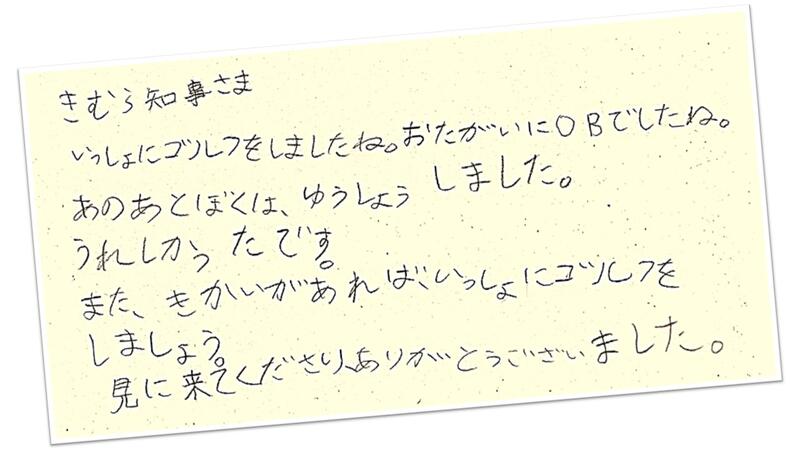 きむら知事さま
いっしょにゴルフをしましたね。おたがいにOBでしたね。
あのあとぼくは、ゆうしょうしました。
うれしかったです。
また、きかいがあれば、いっしょにゴルフを
しましょう。
見に来てくださり、ありがとうございました。